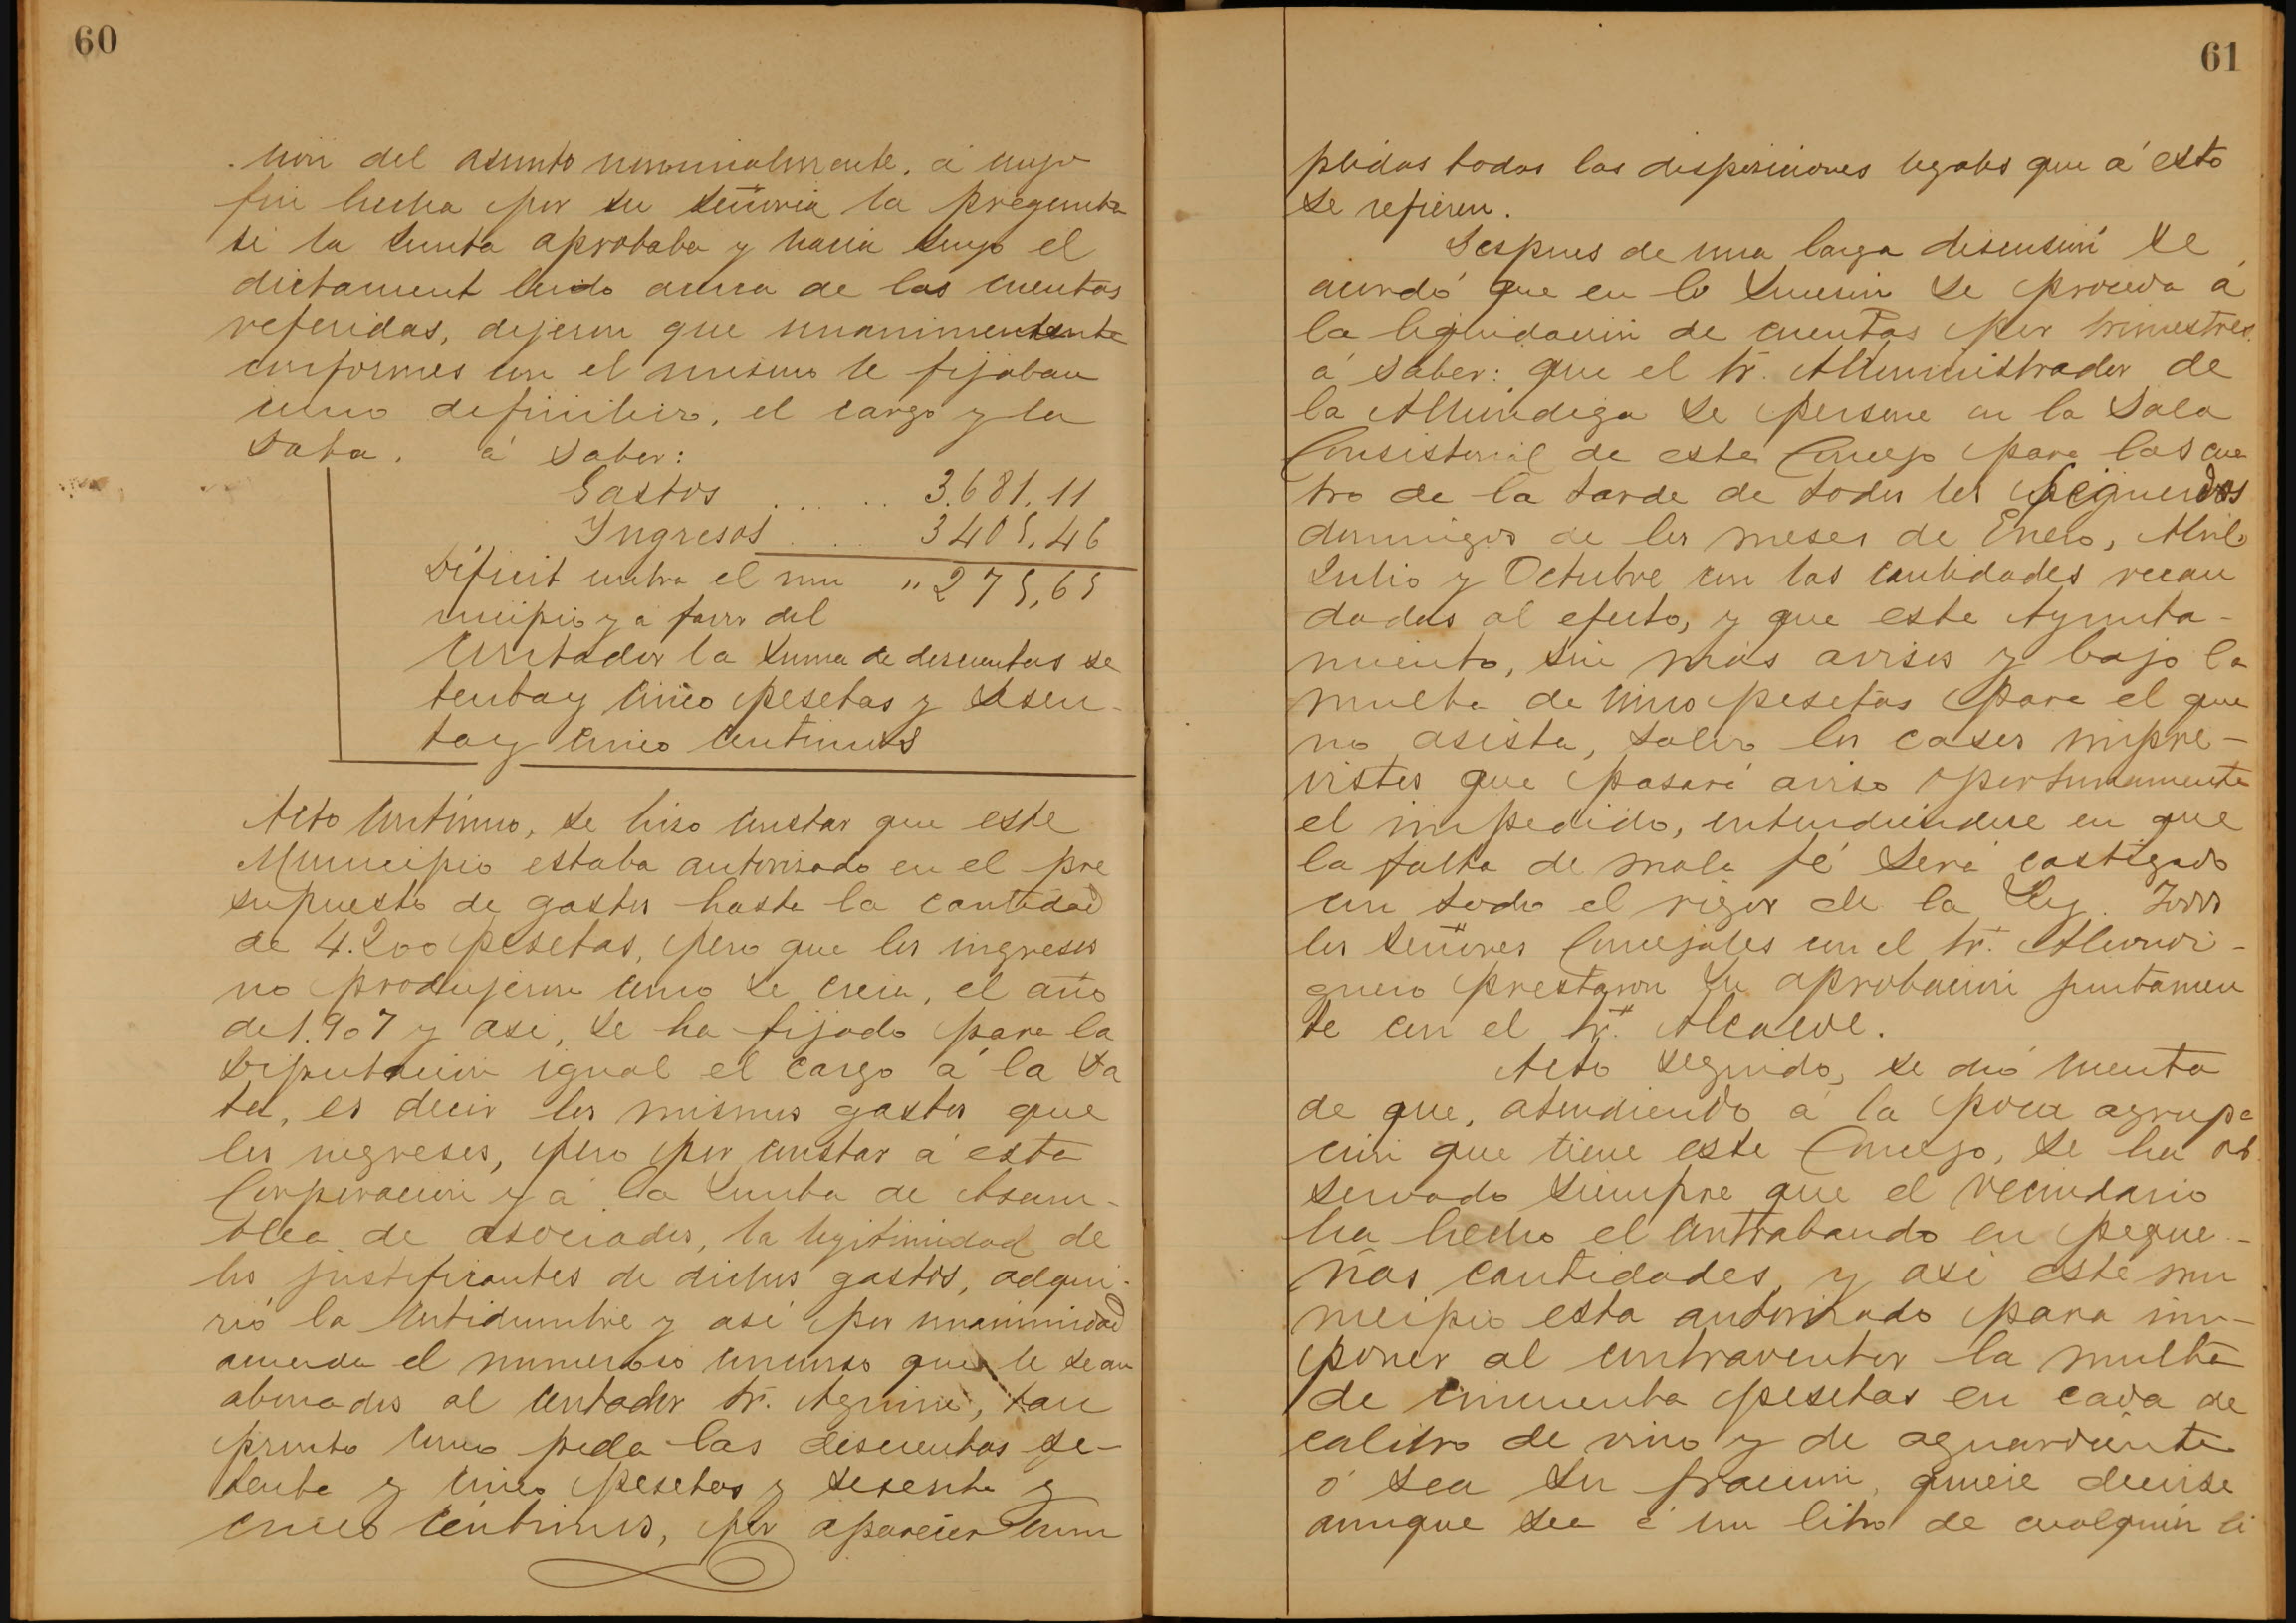 60
cion del asunto nominalmente. á cuyo
fin hecha por su señoria la pregunta
si la Junta aprobaba y hacia suyo el
dictament leido acerca de las cuentas
referidas, dijeron que unanimemente
conformes con el mismo le fijaban
como definitivo, el cargo y la
Data. á saber:
Gastos ...... 3.681,11
Ingresos .... 3405,46
Déficit contra el mu " 275,65
nicipio y a favor del
Contador la suma de doscientas se
tenta y cinco pesetas y sesen-
ta y cinco centimos
Acto continuo, se hizo constar que este
Municipio estaba autorizado en el pre
supuesto de gastos hasta la cantidad
de 4.200 pesetas, pero que los ingresos
no produjeron como se creia, el año
de 1.907 y asi, se ha fijado para la
Diputacion igual el cargo á la Da
ta, es decir los mismos gastos que
los ingresos, pero por constar á esta
Corporacion y á la Junta de Asam-
blea de asociados, la legitimidad de
los justificantes de dichos gastos, adqui-
rió la certidumbre y asi por unanimidad
acuerda el numeroso concurso que le sean
abonados al Contador Sr. Aguirre, tan
pronto como pida las doscientas se-
tenta y cinco pesetas y sesenta y
cinco céntimos, por aparecer cum
61
plidas todas las disposiciones legales que á esto
se refieren.
Despues de una larga discusión se
acordó que en lo sucesivo se proceda á
la liquidación de cuentas por trimestres.
á saber: que el Sr. Administrador de
la Alhóndiga se persone en la Sala
Consistorial de este Concejo para las cua
tro de la tarde de todos los segundos
domingos de los meses de Enero, Abril
Julio y Octubre con las cantidades recau
dadas al efecto, y que este Ayunta-
miento, sin más avisos y bajo la
multa de cinco pesetas para el que
no asista, salvo los casos impre-
vistos que pasará aviso oportunamente
el impedido, entendiéndose en que
la falta de mala fé será castigado
con todo el rigor de la Ley. Todos
los señores Concejales con el Sr. Alhondi-
guero prestaron su aprobación juntamen
te con el Sr. Alcalde.
Acto seguido, se dió cuenta
de que, atendiendo á la poca agrupa
ción que tiene este Concejo, se ha ob
servado siempre que el vecindario
ha hecho el contrabando en peque-
ñas cantidades, y asi este mu
nicipio esta autorizado para im-
poner al contraventor la multa
de cincuenta pesetas en cada de
calitro de vino y de aguardiente
ó sea su fracción, quiere decirse
aunque sea é un litro de cualquier li